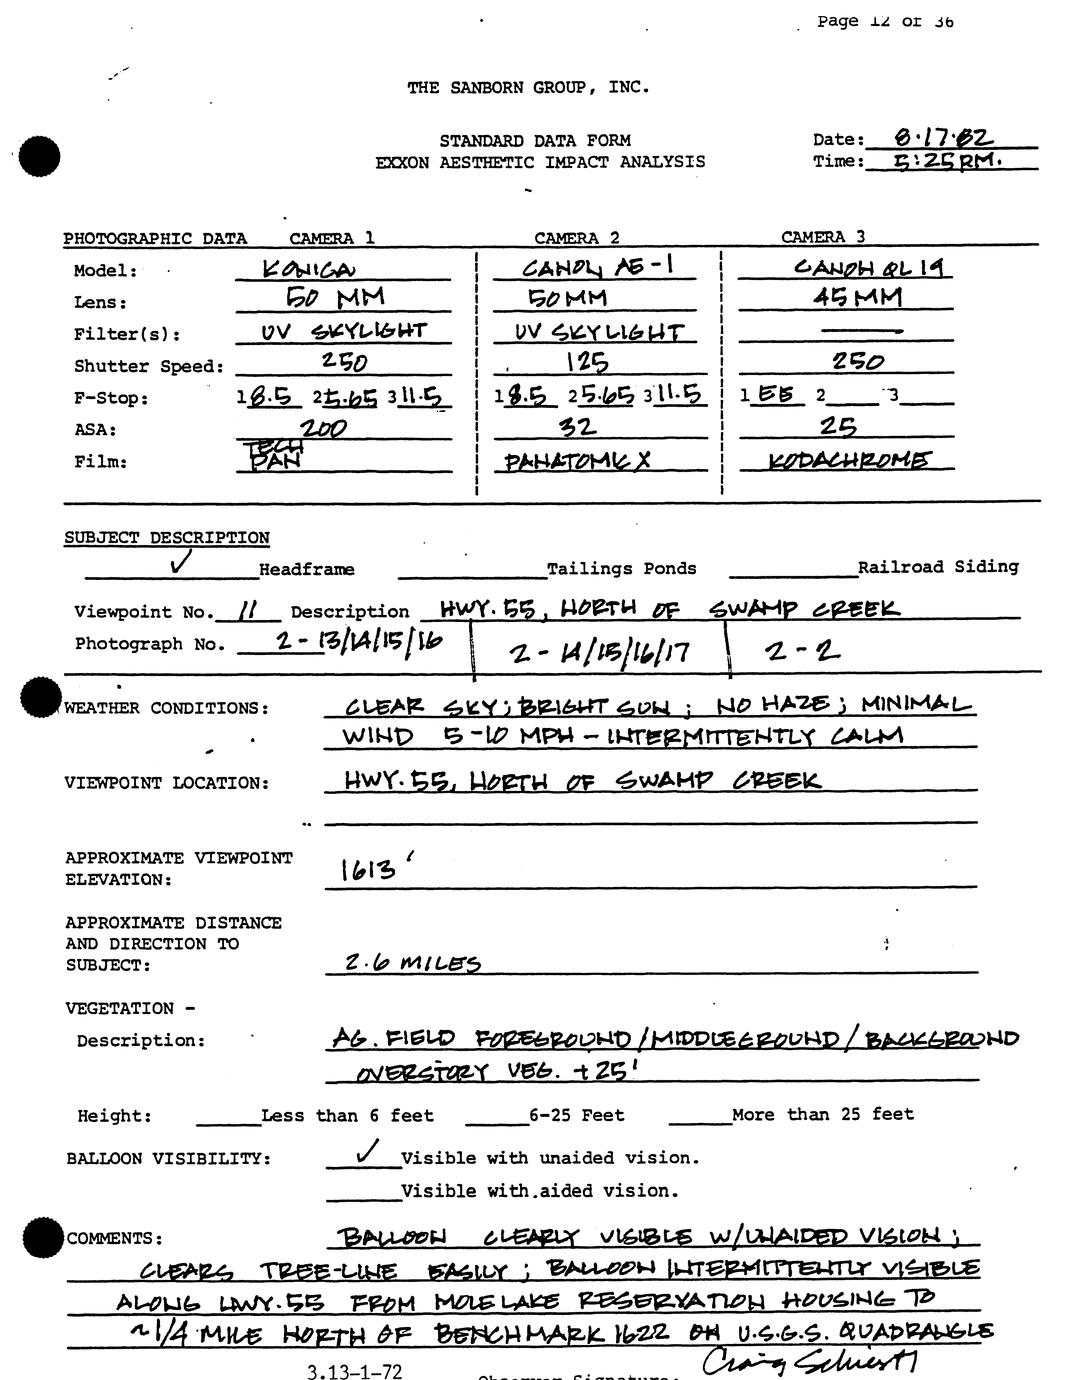 Page 12 of 36
THE SANBORN GROUP, INC.
STANDARD DATA FORM
EXXON AESTHETIC IMPACT ANALYSIS
Date: 8·17·82
Time: 5:25 P.M.
PHOTOGRAPHIC DATA CAMERA 1 CAMERA 2 CAMERA 3
Model: KONICA CANON AE-1 CANON QL 19
Lens: 50 MM 50MM 45MM
Filter(s): UV SKYLIGHT UV SKYLIGHT ———
Shutter Speed: 250 125 250
F-Stop: 1 8.5 2 5.65 3 11.5 1 8.5 2 5.65 3 11.5 1 EE 2 3
ASA: 200 32 25
Film: TECH PAN PANATOMIC X KODACHROME
SUBJECT DESCRIPTION
✓ Headframe Tailings Ponds Railroad Siding
Viewpoint No. 11 Description HWY. 55, NORTH OF SWAMP CREEK
Photograph No. 2-13/14/15/16 2-14/15/16/17 2-2
WEATHER CONDITIONS: CLEAR SKY; BRIGHT SUN; NO HAZE; MINIMAL
WIND 5-10 MPH - INTERMITTENTLY CALM
VIEWPOINT LOCATION: HWY. 55, NORTH OF SWAMP CREEK
APPROXIMATE VIEWPOINT
ELEVATION: 1613'
APPROXIMATE DISTANCE
AND DIRECTION TO
SUBJECT: 2.6 MILES
VEGETATION -
Description: AG. FIELD FOREGROUND/MIDDLEGROUND/BACKGROUND
OVERSTORY VEG. +25'
Height: Less than 6 feet 6-25 Feet More than 25 feet
BALLOON VISIBILITY: ✓ Visible with unaided vision.
Visible with aided vision.
COMMENTS: BALLOON CLEARLY VISIBLE W/UNAIDED VISION;
CLEARS TREE-LINE EASILY; BALLOON INTERMITTENTLY VISIBLE
ALONG HWY. 55 FROM MOLE LAKE RESERVATION HOUSING TO
~1/4 MILE NORTH OF BENCHMARK 1622 ON U.S.G.S. QUADRANGLE
3.13-1-72 Observer Signature: Craig